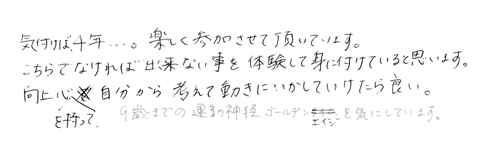 気付けば、4年…。楽しく参加させて頂いています。
こちらでなければ出来ない事を体験して身に付けていると思います。
向上心を持って、自分から考えて動きにいかしていけたら良い。
9歳までの運動神経ゴールデンエイジを気にしています。